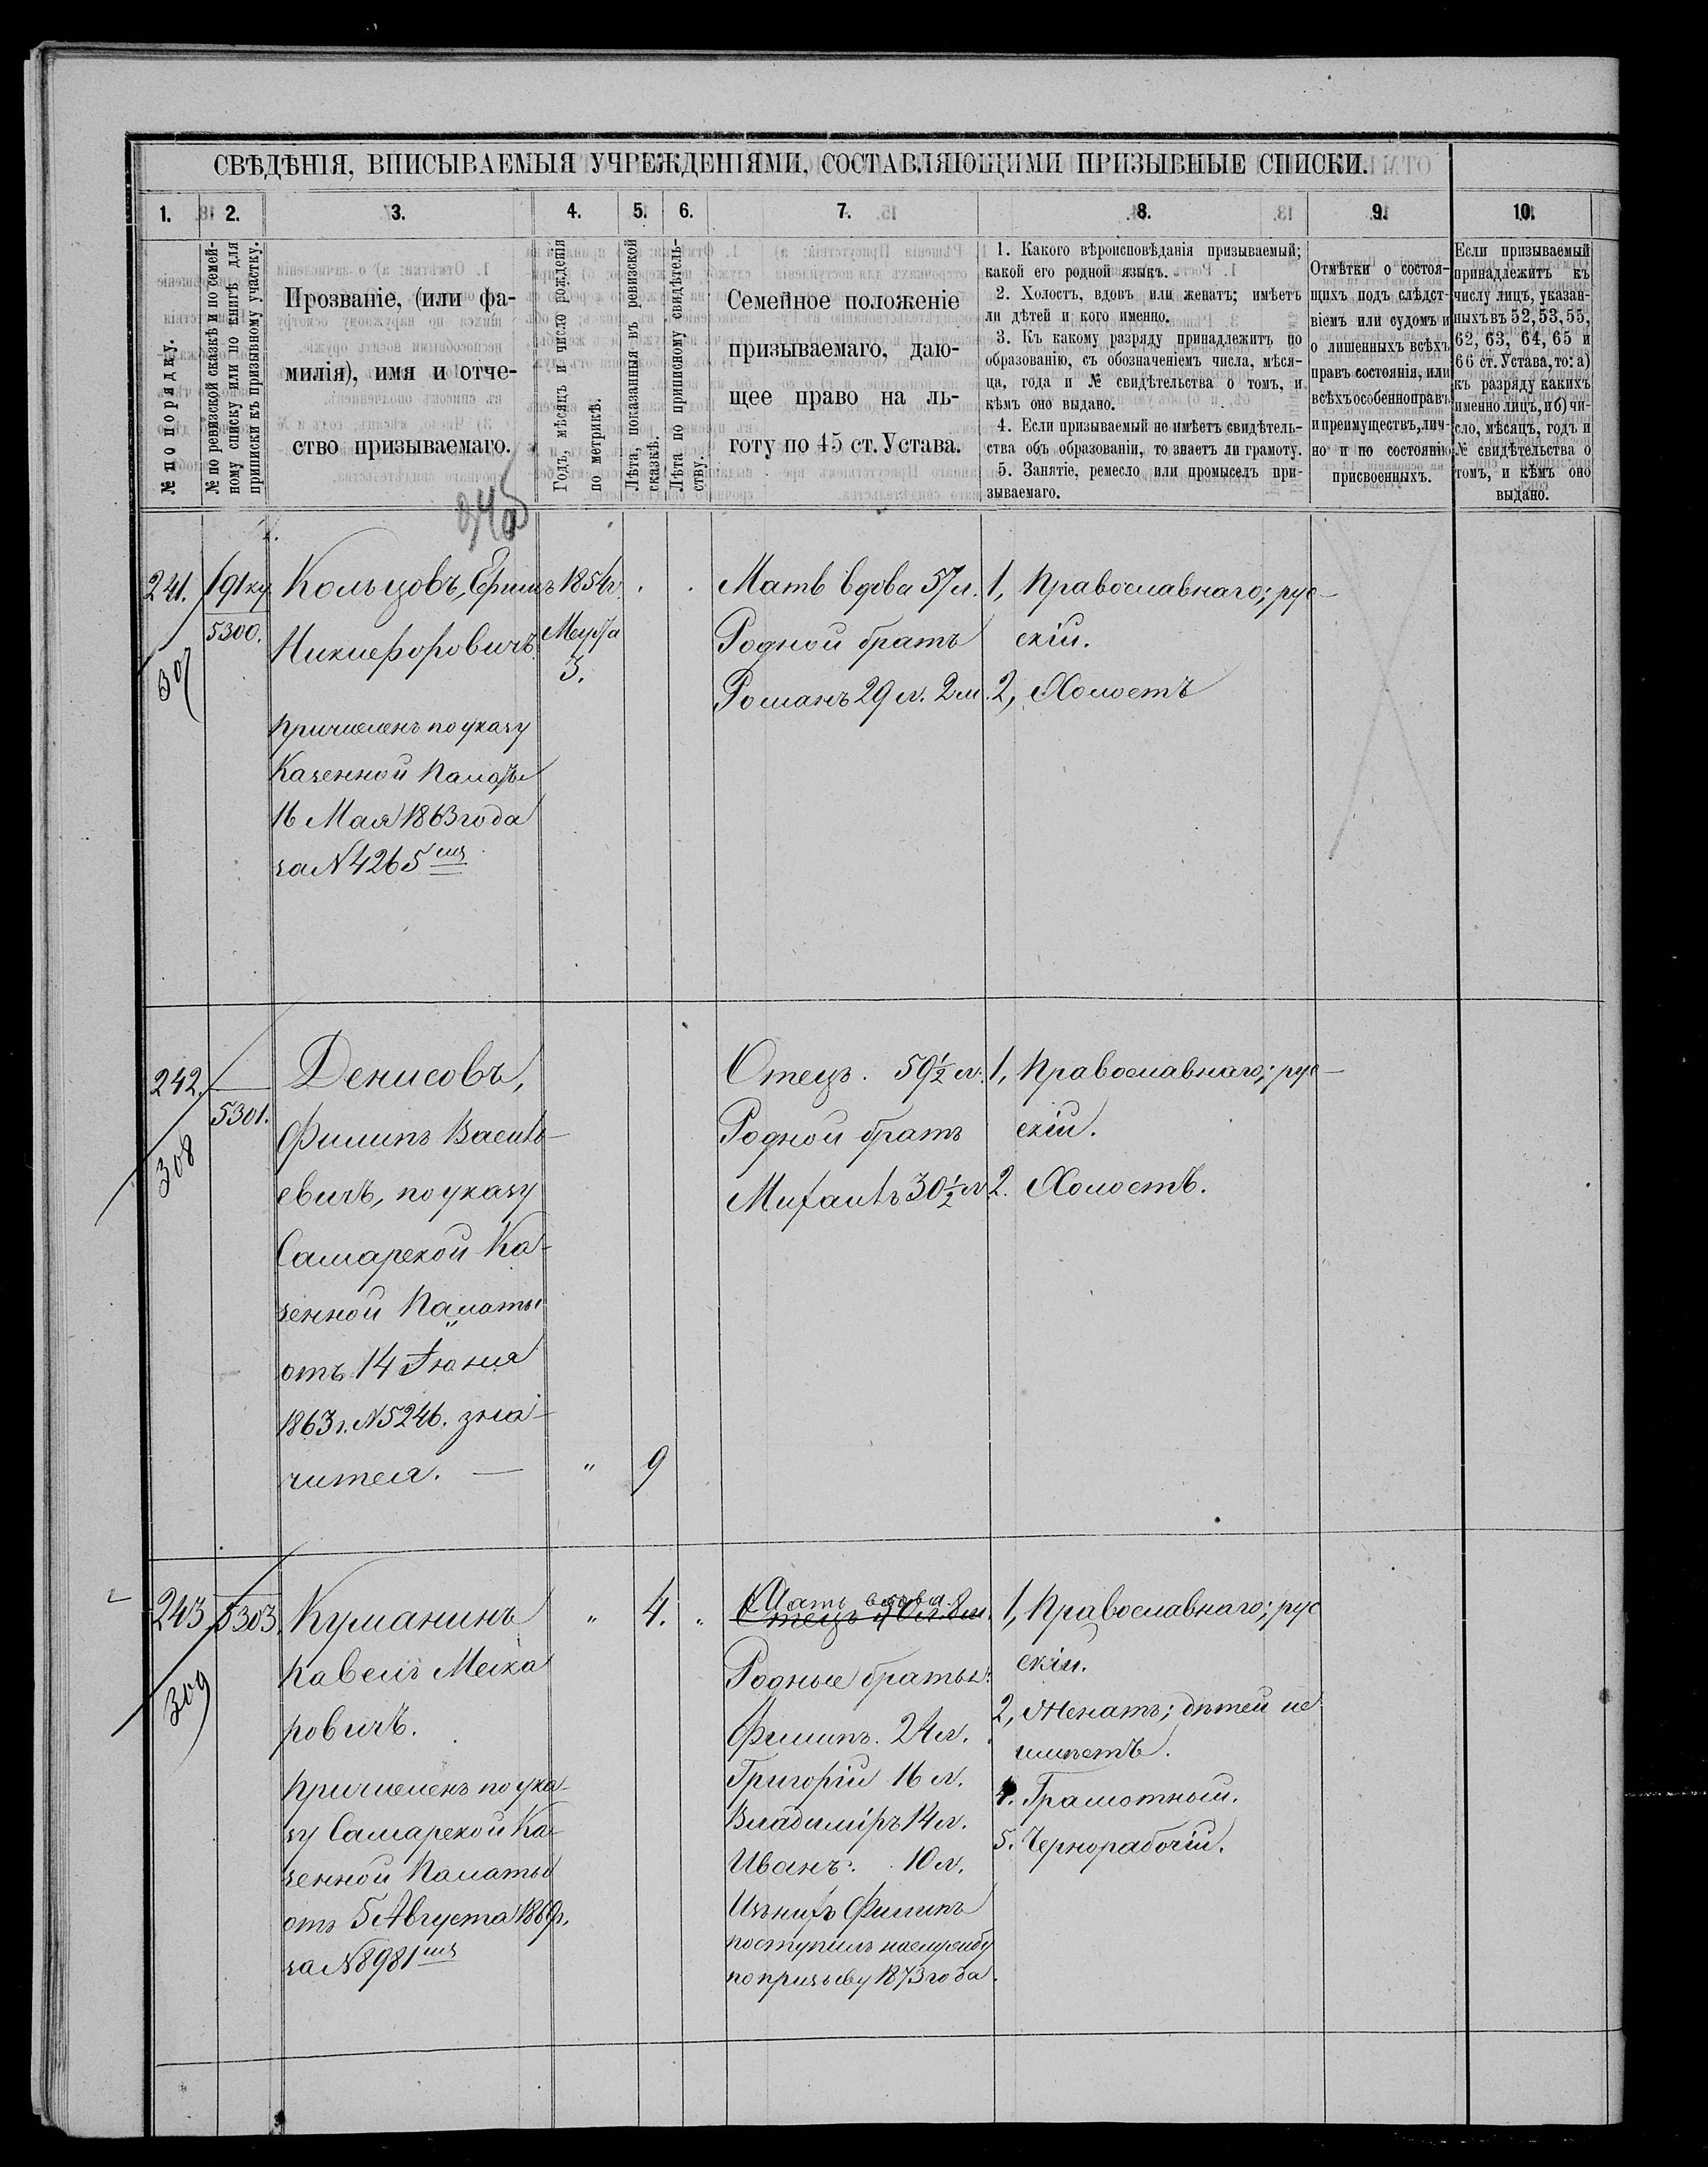 СВѢДѢНІЯ, ВПИСЫВАЕМЫЯ УЧРЕЖДЕНІЯМИ, СОСТАВЛЯЮЩИМИ ПРИЗЫВНЫЕ СПИСКИ.
1.
2.
3.
4.
5.
6.
7.
8.
9.
10.
№ по порядку.
№ по ревизской сказкѣ и по семей-
ному списку или по книгѣ для
приписки къ призывному участку.
Прозваніе, (или фа-
милія), имя и отче-
ство призываемаго.
Годъ, мѣсяцъ и число рожденія
по метрикѣ.
Лѣта, показанныя въ ревизской
сказкѣ.
Лѣта по приписному свидѣтель-
ству.
Семейное положеніе
призываемаго, даю-
щее право на ль-
готу по 45 ст. Устава.
1. Какого вѣроисповѣданія призываемый;
какой его родной языкъ.
2. Холостъ, вдовъ или женатъ; имѣетъ
ли дѣтей и кого именно.
3. Къ какому разряду принадлежитъ по
образованію, съ обозначеніемъ числа, мѣся-
ца, года и № свидѣтельства о томъ, и
кѣмъ оно выдано.
4. Если призываемый не имѣетъ свидѣтель-
ства объ образованіи, то знаетъ ли грамоту.
5. Занятіе, ремесло или промыселъ при-
зываемаго.
Отмѣтки о состоя-
щихъ подъ слѣдст-
віемъ или судомъ и
о лишенныхъ всѣхъ
правъ состоянія, или
всѣхъ особенно правъ
и преимуществъ, лич-
но и по состоянію
присвоенныхъ.
Если призываемый
принадлежитъ къ
числу лицъ, указан-
ныхъ въ 52, 53, 55,
62, 63, 64, 65 и
66 ст. Устава, то: а)
къ разряду какихъ
именно лицъ, и б) чи-
сло, мѣсяцъ, годъ и
№ свидѣтельства о
томъ, и кѣмъ оно
выдано.
241.
307
5300.
Кольцовъ, Ефимъ
Никифоровичъ
Причисленъ по указу
Казенной Палаты
16 Мая 1863 года
за N 4265
1854 г.
Марта
3.
Мать вдова 57 л.
Родной братъ
Романъ 29 л. 2 м.
1, Православнаго; рус-
скій.
2, Холостъ
242.
308
5301.
Денисовъ,
Филипъ Василь-
евичъ, по указу
Самарской Ка-
зенной Палаты
отъ 14 Іюня
1863 г. N 5246. зна-
чится. —
"
9
Отецъ. 59 1/2 л.
Родной братъ
Михаилъ 30 1/2 л.
1, Православнаго; рус-
скій.
2. Холостъ.
243
309
5303.
Куманинъ
Павелъ Мака
ровичъ.
Причисленъ по ука-
зу Самарской Ка-
зенной Палаты
отъ 5 Августа 1869 г.
за N 8981
"
4.
"
Мать вдова
Отецъ
Родные братья:
Филипъ. 24 л.
Григорій 16 л.
Владиміръ 14 л.
Иванъ. 10 л.
Изъ нихъ Филипъ
поступилъ на службу
по призыву 1873 года.
1, Православнаго; рус
скій.
2, Женатъ; дѣтей не
имѣетъ.
4. Грамотный.
5. Чернорабочій.